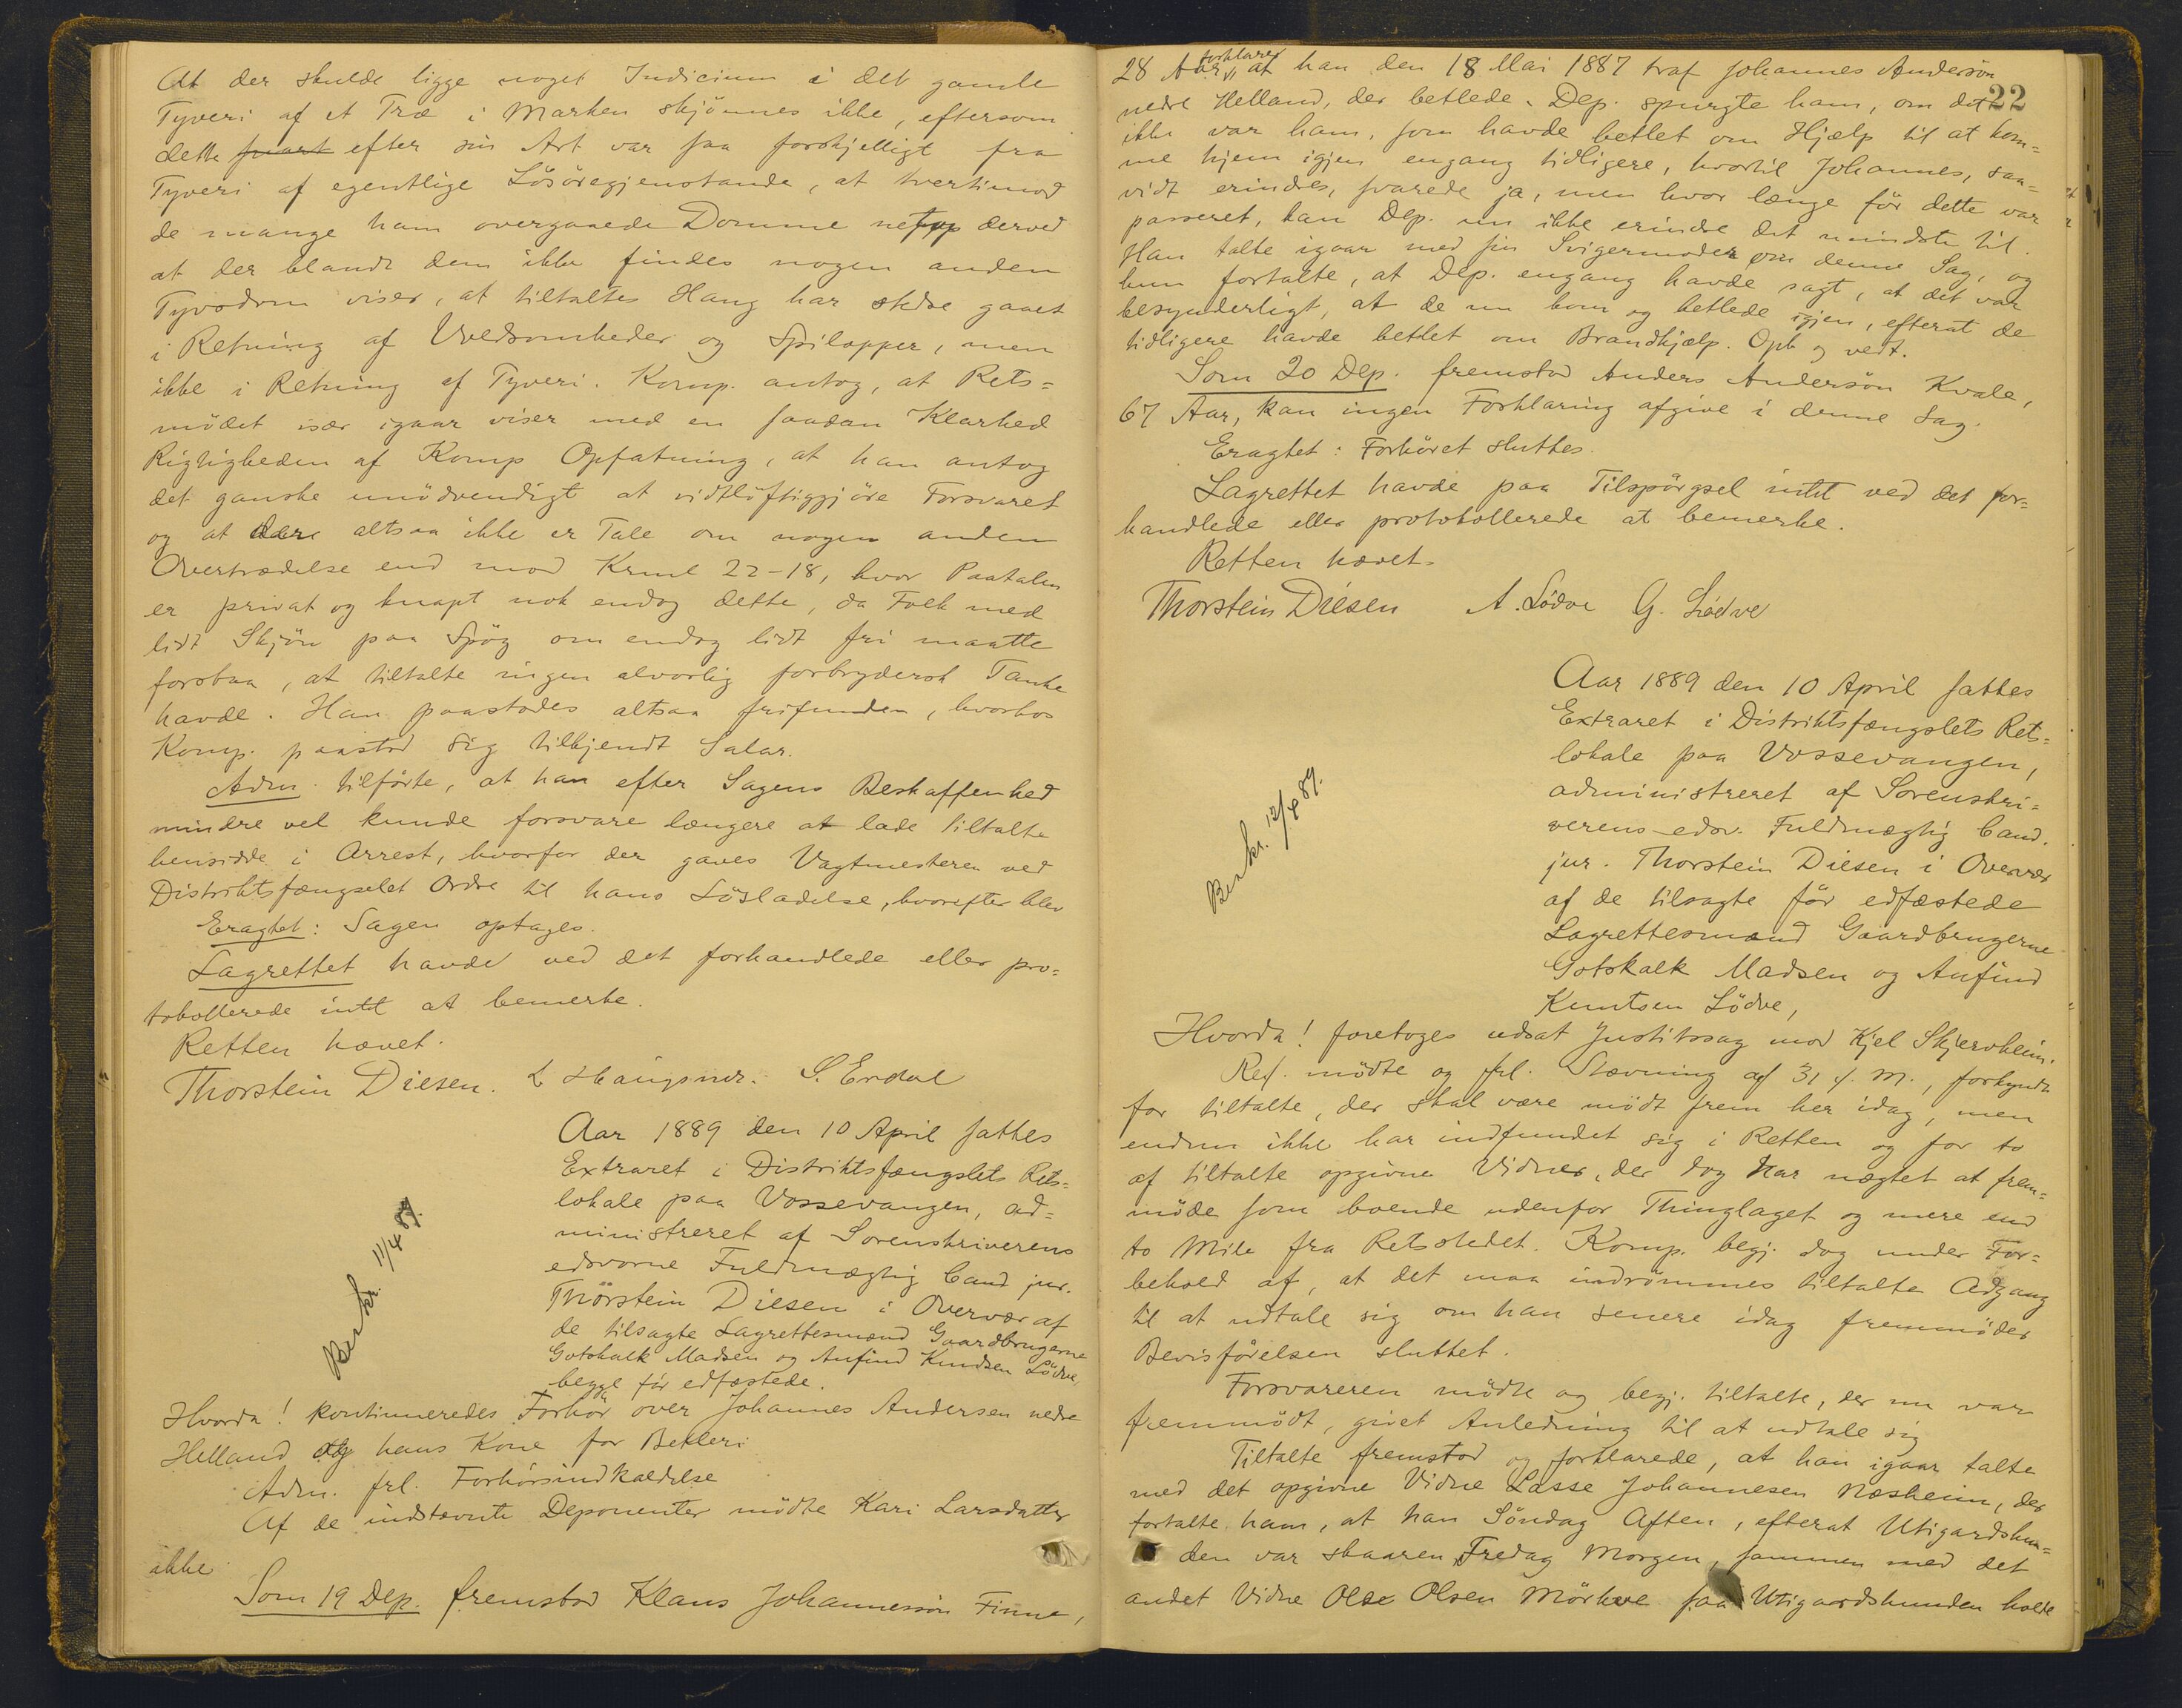 At der skulde ligge noget Indicium i det gamle
Tyveri af et Træ i Marken skjönnes ikke, eftersom
dette svart efter sin Art var saa forskjelligt fra
Tyveri af egentlige Lösöregjenstande, at tvertimod
de mange ham overgaaede Domme netop derved
at der blandt dem ikke findes nogen anden
Tyvsdom viser, at tiltaltes Hang har stedse gaaet
i Retning af Voldsomheder og Spilopper, men
ikke i Retning af Tyveri. Komp. antog, at Rets=
mödet især igaar viser med en saadan Klarhed
Rigtigheden af Komp Opfatning, at han antog
det ganske unödvendigt at vidtlöftiggjöre Forsvaret
og at der altsaa ikke er Tale om nogen anden
Overtrædelse end mod Krml 22-18, hvor Paatalen
er privat og knapt nok endog dette, da Folk med
lidt Skjön paa Spög om endog lidt fri maatte
forstaa, at tiltalte ingen alvorlig forbrydersk Tanke
havde. Han paastodes altsaa frifunden, hvorhos
Komp. paastod sig tilkjendt Salar.
Adm. tilförte, at han efter Sagens Beskaffenhed
mindre vel kunde forsvare længere at lade tiltalte
hensidde i Arrest, hvorfor der gaves Vagtmesteren ved
Distriktsfængselet Ordre til hans Lösladelse, hvorefter blev
Eragtet: Sagen optages.
Lagrettet havde ved det forhandlede eller pro=
tokollerede intet at bemerke.
Retten hævet.
Thorstein Diesen. L Haugsmr. S. Endal
Aar 1889 den 10 April sattes
Extraret i Distriktsfængslets Rets=
lokale paa Vossevangen, ad=
ministreret af Sorenskriverens
edsvorne Fuldmægtig Cand jur.
Thorstein Diesen i Overvær af
de tilsagte Lagrettesmænd Gaardbrugerne
Gotskalk Madsen og Anfind Knudsen Lödve,
begge för edfæstede.
Beskr. 11/4 89.
Hvorda! kontinueredes Forhör over Johannes Andersen nedre
Helland og hans Kone for Betleri
Adm. frl. Forhörsindkaldelse
Af de indstævnte Deponenter mödte Kari Larsdatter
ikke
Som 19 Dep. fremstod Klaus Johannessön Finne,
22
28 Aar, forklarer at han den 18 Mai 1887 traf Johannes Andersön
nedre Helland, der betlede. Dep. spurgte ham, om det
ikke var ham, som havde betlet om Hjælp til at kom=
me hjem igjen engang tidligere, hvortil Johannes, saa=
vidt erindres, svarede ja, men hvor længe för dette var
passeret, kan Dep. nu ikke erindre det mindste til.
Han talte igaar med sin Svigermoder om denne Sag, og
hun fortalte, at Dep. engang havde sagt, at det var
besynderligt, at de nu kom og betlede igjen, efterat de
tidligere havde betlet om Brandhjælp. Opl. og vedt.
Som 20 Dep. fremstod Anders Andersön Kvale,
67 Aar, kan ingen Forklaring afgive i denne Sag.
Eragtet: Forhöret sluttes.
Lagrettet havde paa Tilspörgsel intet ved det for=
handlede eller protokollerede at bemerke.
Retten hævet.
Thorstein Diesen A. Lödve G. Lödve
Aar 1889 den 10 April sattes
Extraret i Distriktsfængslets Rets=
lokale paa Vossevangen,
administreret af Sorenskri=
verens edsv. Fuldmægtig Cand.
jur. Thorstein Diesen i Overvær
af de tilsagte för edfæstede
Lagrettesmænd Gaardbrugerne
Gotskalk Madsen og Anfind
Knutsen Lödve,
Beskr. 12/4 89.
Hvorda! foretoges udsat Justitssag mod Kjel Skjervheim.
Ref. mödte og frl. Stævning af 31 f. M., forkyndt
for tiltalte, der skal være mödt frem her idag, men
endnu ikke har indfundet sig i Retten og for to
af tiltalte opgivne Vidner, der dog har nægtet at frem=
möde som boende udenfor Thinglaget og mere end
to Mile fra Retsstedet. Komp. begj. dog under For=
behold af, at det maa indrömmes tiltalte Adgang
til at udtale sig om han senere idag fremmöder
Bevisförelsen sluttet.
Forsvareren mödte og begj. tiltalte, der nu var
fremmödt, givet Anledning til at udtale sig
Tiltalte fremstod og forklarede, at han igaar talte
med det opgivne Vidne Lasse Johannesen Næsheim, der
fortalte ham, at han Söndag Aften, efterat Utigardshun=
den var skaaren Fredag Morgen, sammen med det
andet Vidne Olse Olsen Mörkve saa Utigaardshunden holde